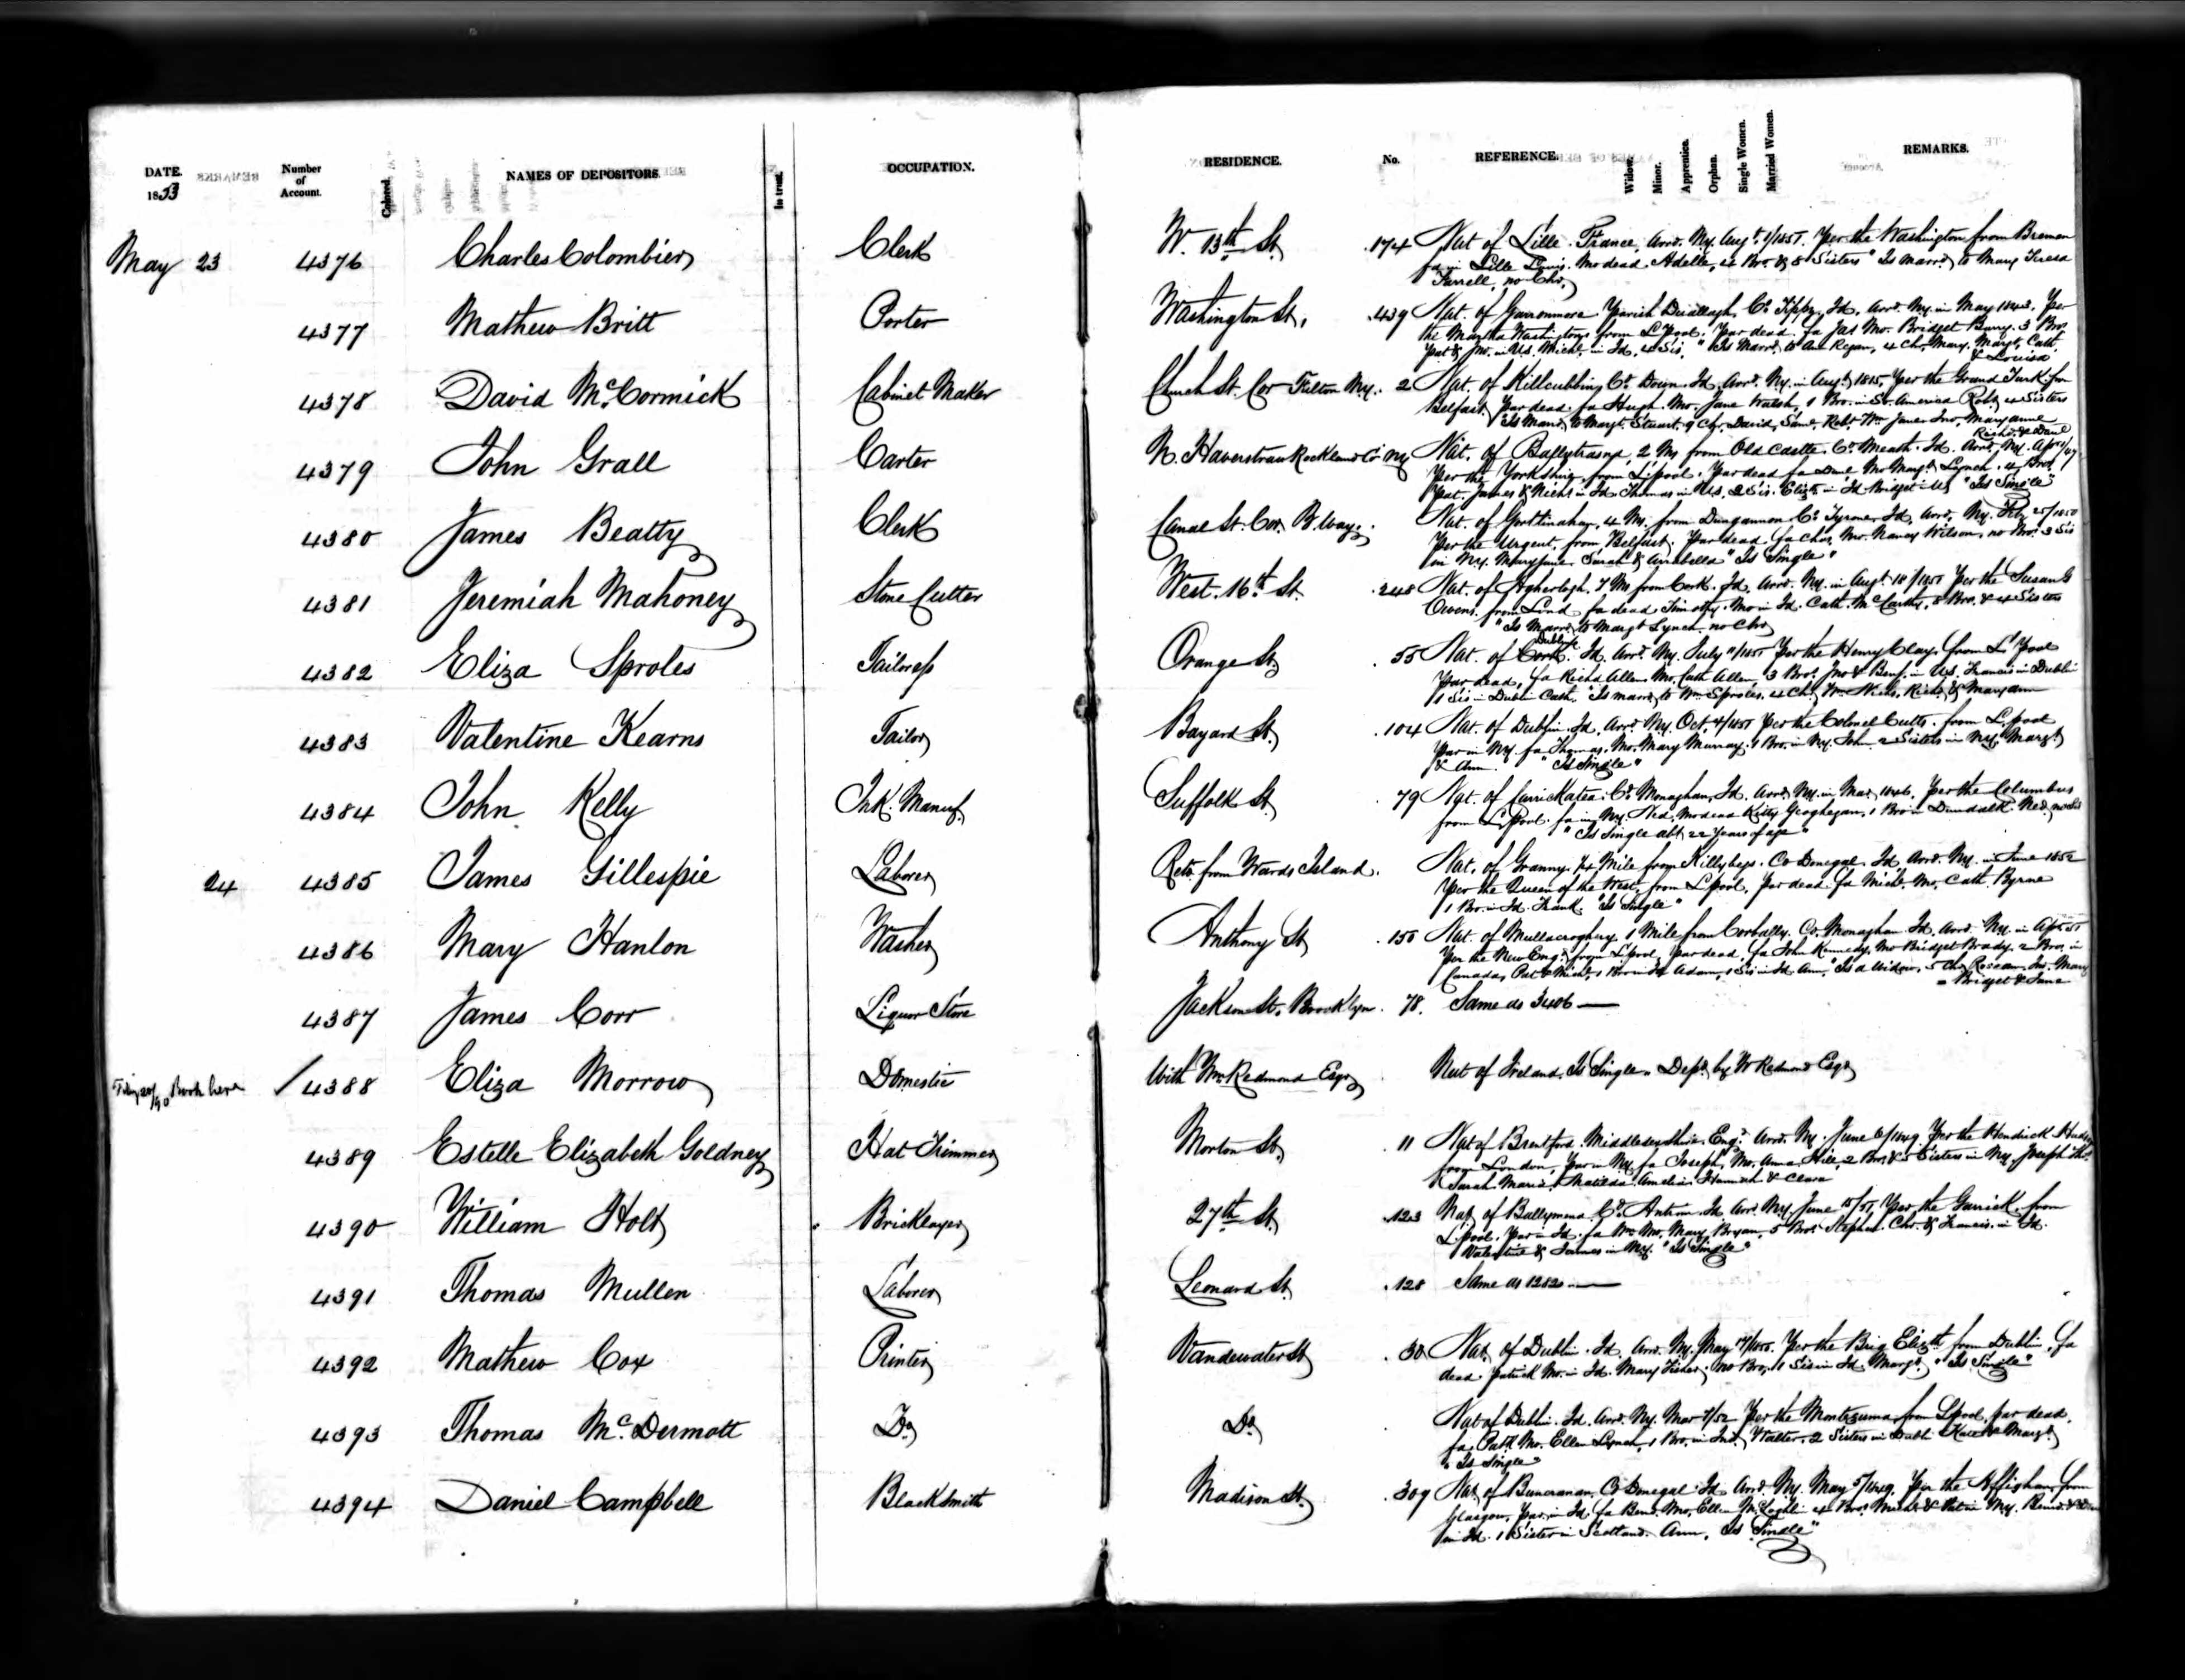 DATE. 1853 Number of Account. Colored. NAMES OF DEPOSITORS. In trust. OCCUPATION. RESIDENCE. No. REFERENCE. Widow. Minor. Apprentice. Orphan. Single Women. Married Women. REMARKS.
May 23 4376 Charles Colombier Clerk W. 13th St. 174 Nat of Lille. France, Arrd. Ny. Augt. 1/1851. Per the Washington from Bremen
fa in Lille Louis. Mo dead Adelle, 4 Bro. & 8 Sisters "Is marrd. to Mary Teresa
Farrell, no Chr.
4377 Mathew Britt Porter Washington St. 439 Nat. of Parish Co. Tippy. Id. Arrd. Ny. in May 1843. Per
the Martha Washington from LPool. Par dead. fa Jas Mo. Bridget Barry. 3 Bros
Pat & Jno. in US. Michl. in Id. 4 Sis. "Is Marrd. to Ann Regan, 4 Chr. Mary. Margt. Cath.
& Louisa
4378 David McCormick Cabinet Maker Church St. Cor Fulton Ny. 2 Nat. of Killcubbin Co. Down. Id. Arrd. Ny. in Augt. 1815. Per the Grand Turk from
Belfast. Par dead. fa Hugh. Mo. Jane Walsh, 1 Bro. in So. America Robt. 4 Sisters
"Is Marrd. to Margt. Stuart, 9 Chr. David, Saml. Robt. Wm Jane Jno. Maryanne
Richd. & Danl
4379 John Grall Carter N. Haverstraw Rockland Co Ny Nat. of 2 Ms from Old Castle. Co. Meath. Id. Arrd. Ny. Apr /47
Per the Yorkshire from L'pool. Par dead fa Danl Mo Margt. Lynch. 4 Bro.
Pat. James & Michl in Id Thomas in US. 2 Sis. Elizth. in Id Bridget US "Is Single"
4380 James Beatty Clerk Canal St. Cor. B.way. Nat. of 4 Ms. from Dungannon Co. Tyrone, Id, Arrd. Ny. Feb 25/1850
Per the Urgent, from Belfast. Par dead, fa Chas. Mo. Nancy Wilson, no Bro. 3 Sis
in Ny. Maryjane, Sarah & Arrabella "Is Single"
4381 Jeremiah Mahoney Stone Cutter West. 16th St. 248 Nat. of 7 Ms from Cork. Id. Arrd. Ny. in Augt. 18/1850 Per the Susan G
Owens. from Lond fa dead Timothy. Mo in Id. Cath. McCarthy, 8 Bro. & 4 Sisters
"Is Marrd. to Margt Lynch. no Chr.
4382 Eliza Sproles Tailoress Orange St. 55 Nat. of Cork Dublin Id. Arrd. Ny. July 11/1851 Per the Henry Clay. from L'Pool
Par dead, fa Richd Allen Mo. Cath Allen, 3 Bro. Jno & Benj. in US. Francis in Dublin
1 Sis in Dublin Cath. "Is marrd. to Wm Sproles, 4 Ch. Wm Richd. & Maryann
4383 Valentine Kearns Tailor Bayard St. 104 Nat. of Dublin Id. Arrd. Ny. Oct. 4/1851 Per the Colonel Cutts. from L'pool
Par in Ny fa Thomas. Mo. Mary Murray. 1 Bro. in Ny. John 2 Sisters in Ny. Margt.
& Ann. "Is Single"
4384 John Kelly Ink. Manuf. Suffolk St. 79 Nat. of Carrickatea. Co. Monaghan. Id. Arrd. Ny. in Mar. 1846. Per the Columbus
from L'Pool. fa in Ny. Ned. Mo dead Kitty Geoghegan. 1 Bro in Dundalk. Ned. no Sis
"Is Single abt 22 Years of age"
24 4385 James Gillespie Laborer Retd. from Wards Island. Nat. of Granny. 1/4 Mile from Killybegs. Co Donegal. Id Arrd. Ny. in June 1852
Per the Queen of the West, from L'pool. Par dead. fa Michl. Mo. Cath Byrne
1 Bro. in Id. Frank. "Is Single"
4386 Mary Hanlon Washer Anthony St 150 Nat. of 1 Mile from Corbally. Co. Monaghan Id. Arrd. Ny. in Apr. 51
Per the New Engd. from L'pool, par dead, fa John Kennedy. Mo Bridget Brady. 2 Bro. in
Canada, Pat & Michl. 1 Bro in Id Adam, 1 Sis in Id Ann, "Is a Widow, 5 Chr Rosean Jno. Mary
Bridget & Jane
4387 James Corr Liquor Store Jackson St. Brooklyn. 78. Same as 3406
Feby 20/90 Book here / 4388 Eliza Morrow Domestic With Wm Redmond Esqr Nat of Ireland. Is Single. Depd. by W Redmond Esqr
4389 Estelle Elizabeth Goldney Hat Trimmer Morton St. 11 Nat of Brentford. Middlesexshire. Engd. Arrd. Ny. June 6/1849. Per the Hendrick Hudson
from London, Par in Ny. fa Joseph, Mo. Anna Hill, 2 Bro. & 5 Sisters in Ny. Joseph Ths.
Sarah Maria, Matilda Amelia Hannah & Clara
4390 William Holt Bricklayer 27th St. 123 Nat. of Ballymena. Co. Antrim. Id Arrd. Ny. June 15/51. Per the Garrick from
L'pool. Par in Id. fa Wm Mo. Mary Bryan, 5 Bros Stephen. Chr. & Francis. in Id.
Valentine & James in Ny. "Is Single"
4391 Thomas Mullen Laborer Leonard St. 128 Same as 1282
4392 Mathew Cox Printer Vandewater St 30 Nat. of Dublin. Id. Arrd. Ny. May 17/1850. Per the Brig Elizth. from Dublin. fa
dead. Patrick Mo. in Id. Mary Fisher, no Bro. 1 Sis in Id. Margt. "Is Single"
4393 Thomas McDermott Do. Do. Nat of Dublin. Id. Arrd. Ny. Mar 7/52 Per the Montezuma from L'pool. par dead.
fa Patk. Mo. Ellen Lynch, 1 Bro. in Walter. 2 Sisters in Dubli Kate & Margt.
"Is Single"
4394 Daniel Campbell Blacksmith Madison St. 309 Nat of Buncranan. Co Donegal Id Arrd. Ny. May 5/1849. Per the Affghan from
Glasgow. Par. in Id. fa Bernd. Mo. Ellen McLaghli 4 Bro. Michl & Pat in Ny. Bernd. &
in Id. 1 Sister in Scotland. Ann, "Is Single"